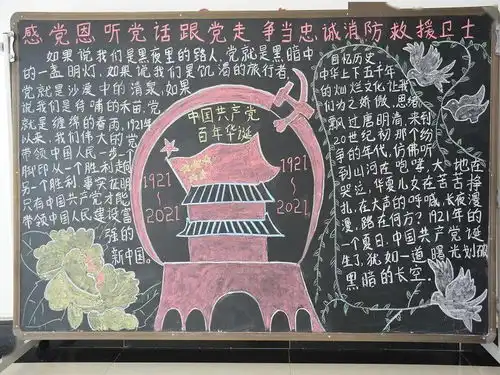 感党恩听党话跟党走 争当忠诚消防救援卫士
如果说我们是黑夜里的路人,党就是黑暗中
的一盏明灯,如果说我们是饥渴的旅行者,
党就是沙漠中的清泉,如果
说我们是待哺的禾苗,党
就是缠绵的春雨,1921年
以来,我们伟大的党
带领中国人民一步一个
脚印从一个胜利走向
另一个胜利,事实证明
只有中国共产党才能
带领中国人民建设富
强的
新中国。
中国共产党
百年华诞
1921
~
2021
1921
~
2021
回忆历史,
中华上下五千年
的灿烂文化让我
们为之骄傲,思绪
飘过唐明清,来到
20世纪初那个纷
争的年代,仿佛听
到山河在咆哮,大地在
哭泣,华夏儿女在苦苦挣
扎,在大声的呼喊,长夜漫
漫,路在何方?1921年的
一个夏日,中国共产党诞
生了,犹如一道曙光划破
黑暗的长空.